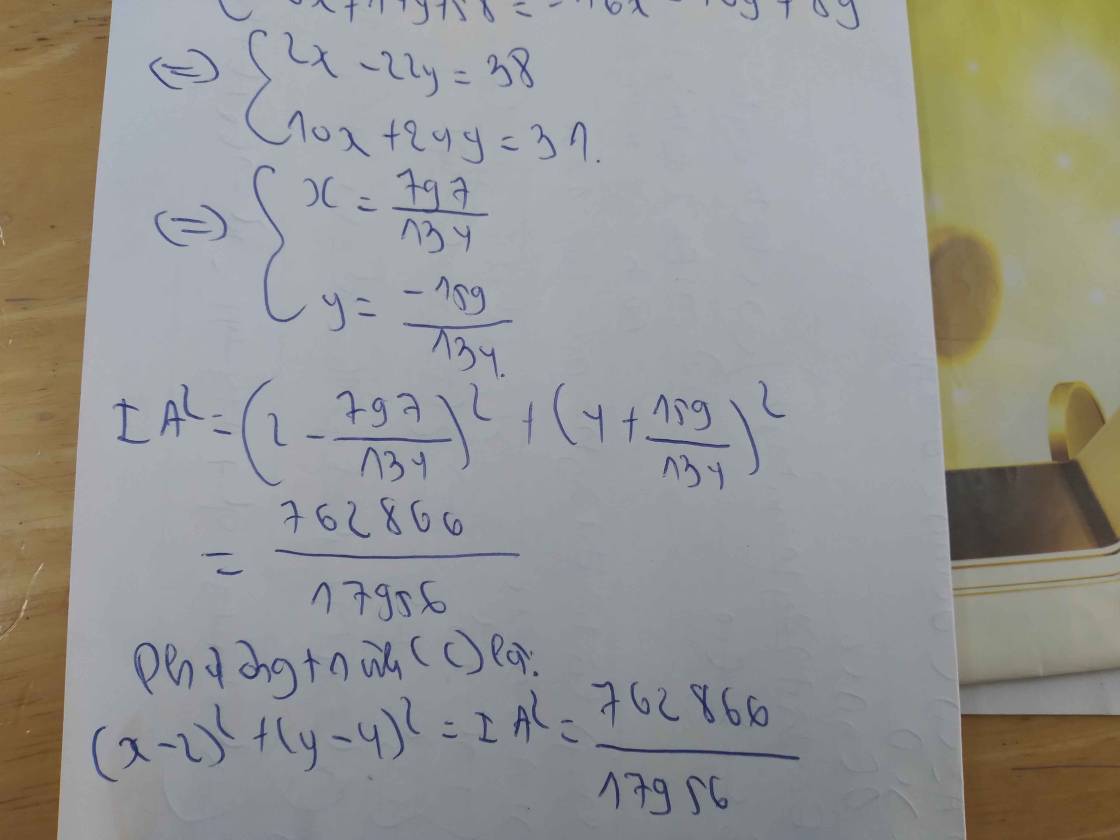 (=) { 2x - 22y = 38
10x + 24y = 31.
(=) { x = 797/134
y = -159/134.
IA² = (2 - 797/134)² + (4 + 159/134)²
= 762866/17956
Phương trình (C) là:
(x-2)² + (y-4)² = IA² = 762866/17956